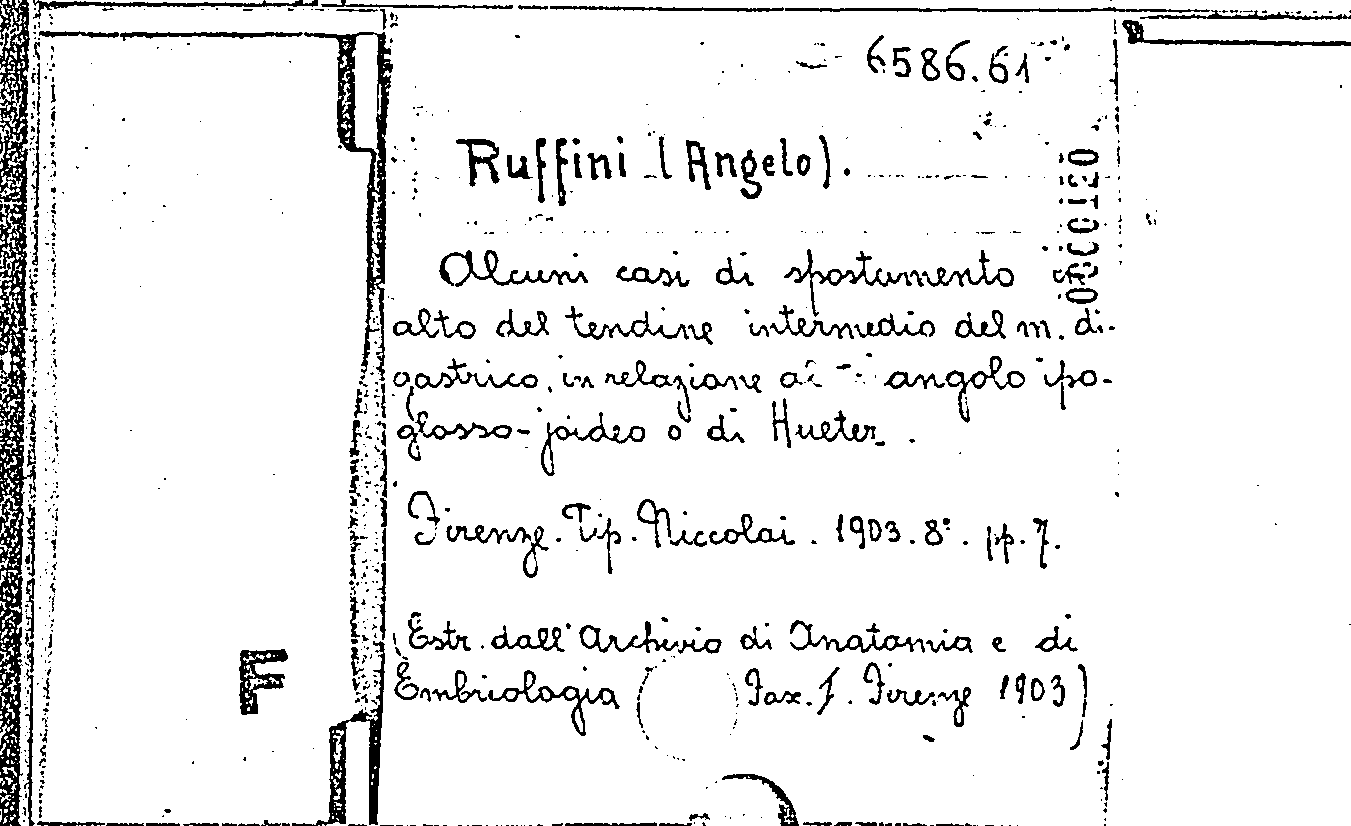 6586.61
Ruffini (Angelo).
Alcuni casi di spostamento
alto del tendine intermedio del m. di-
gastrico, in relazione angolo ipo-
glosso-joideo o di Hueter.
Firenze. Tip. Niccolai. 1903. 8°. pp. 7.
(Estr. dall'Archivio di Anatomia e di
Embriologia Fax. 1. Firenze 1903)
F